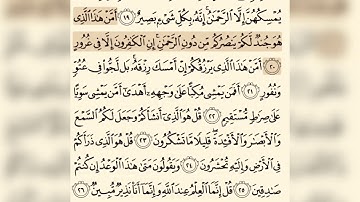 يُمْسِكُهُنَّ إِلَّا ٱلرَّحْمَٰنُ إِنَّهُۥ بِكُلِّ شَىْءٍۭ بَصِيرٌ ١٩ أَمَّنْ هَٰذَا ٱلَّذِى
هُوَ جُندٌ لَّكُمْ يَنصُرُكُم مِّن دُونِ ٱلرَّحْمَٰنِ إِنِ ٱلْكَٰفِرُونَ إِلَّا فِى غُرُورٍ
٢٠ أَمَّنْ هَٰذَا ٱلَّذِى يَرْزُقُكُمْ إِنْ أَمْسَكَ رِزْقَهُۥ بَل لَّجُّوا۟ فِى عُتُوٍّ
وَنُفُورٍ ٢١ أَفَمَن يَمْشِى مُكِبًّا عَلَىٰ وَجْهِهِۦٓ أَهْدَىٰٓ أَمَّن يَمْشِى سَوِيًّا
عَلَىٰ صِرَٰطٍ مُّسْتَقِيمٍ ٢٢ قُلْ هُوَ ٱلَّذِىٓ أَنشَأَكُمْ وَجَعَلَ لَكُمُ ٱلسَّمْعَ
وَٱلْأَبْصَٰرَ وَٱلْأَفْـِٔدَةَ قَلِيلًا مَّا تَشْكُرُونَ ٢٣ قُلْ هُوَ ٱلَّذِى ذَرَأَكُمْ
فِى ٱلْأَرْضِ وَإِلَيْهِ تُحْشَرُونَ ٢٤ وَيَقُولُونَ مَتَىٰ هَٰذَا ٱلْوَعْدُ إِن كُنتُمْ
صَٰدِقِينَ ٢٥ قُلْ إِنَّمَا ٱلْعِلْمُ عِندَ ٱللَّهِ وَإِنَّمَآ أَنَا۠ نَذِيرٌ مُّبِينٌ ٢٦